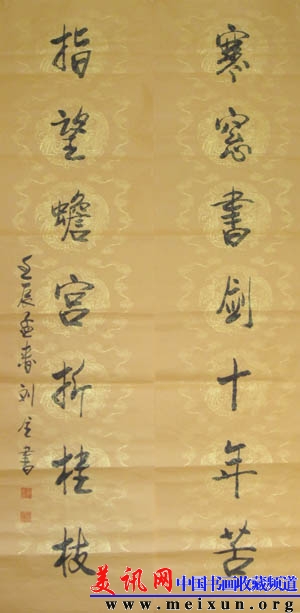 寒窓書劍十年苦
指望蟾宮折桂枝
壬辰孟春刘全書
美讯网 中国书画收藏频道
www.meixun.org